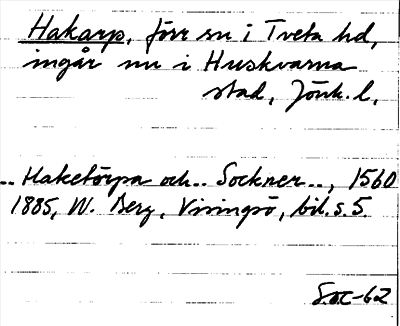 Hakarp, förr sn i Tveta hd,
ingår nu i Huskvarna
stad, Jönk. l.
.. Haketörpa och .. Sockner .., 1560
1885, W. Berg, Visingsö, bil. s. 5.
S.oc-62